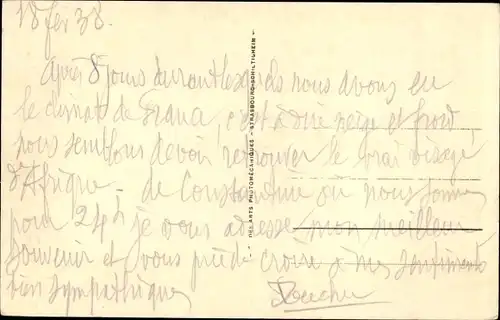 18 fev 38.
Après 8 jours durant lesquels nous avons eu
le climat de c'est à dire neige et froid
nous semblons devoir retrouver le vrai visage
d'Afrique – de Constantine où nous sommes
pour 24h je vous adresse mon meilleur
souvenir et vous prie de croire à mes sentiments
bien sympathiques
DES ARTS PHOTOMÉCANIQUES - STRASBOURG-SCHILTIGHEIM